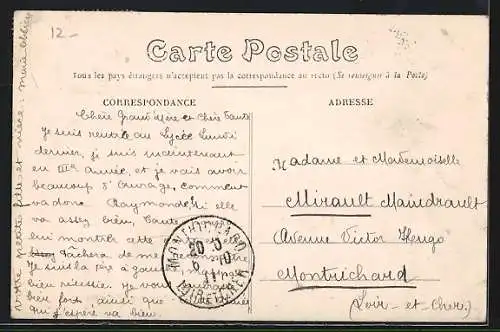 12-
Carte Postale
Tous les pays étrangers n'acceptent pas la correspondance au recto (Se renseigner à la Poste)
CORRESPONDANCE
ADRESSE
Chère Grand'Mère et Chère Tante
Je suis rentrée au Lycée Lundi
dernier, je suis maintenant
en IIIe Année, et je vais avoir
beaucoup d'ouvrage, comment
va donc Raymonde, si elle
va assez bien, Tante
lui montrer cette
tâchera de me
Je suis la 1ère à
bien réussie. Je vous
bien fort, ainsi que
qui j'espère va bien.
votre petite fille et nièce:
Madame et Mademoiselle
Mirault Maindrault
Avenue Victor Hugo
Montrichard
(Loir-et-Cher)
MONTRICHARD
LOIR ET CHER